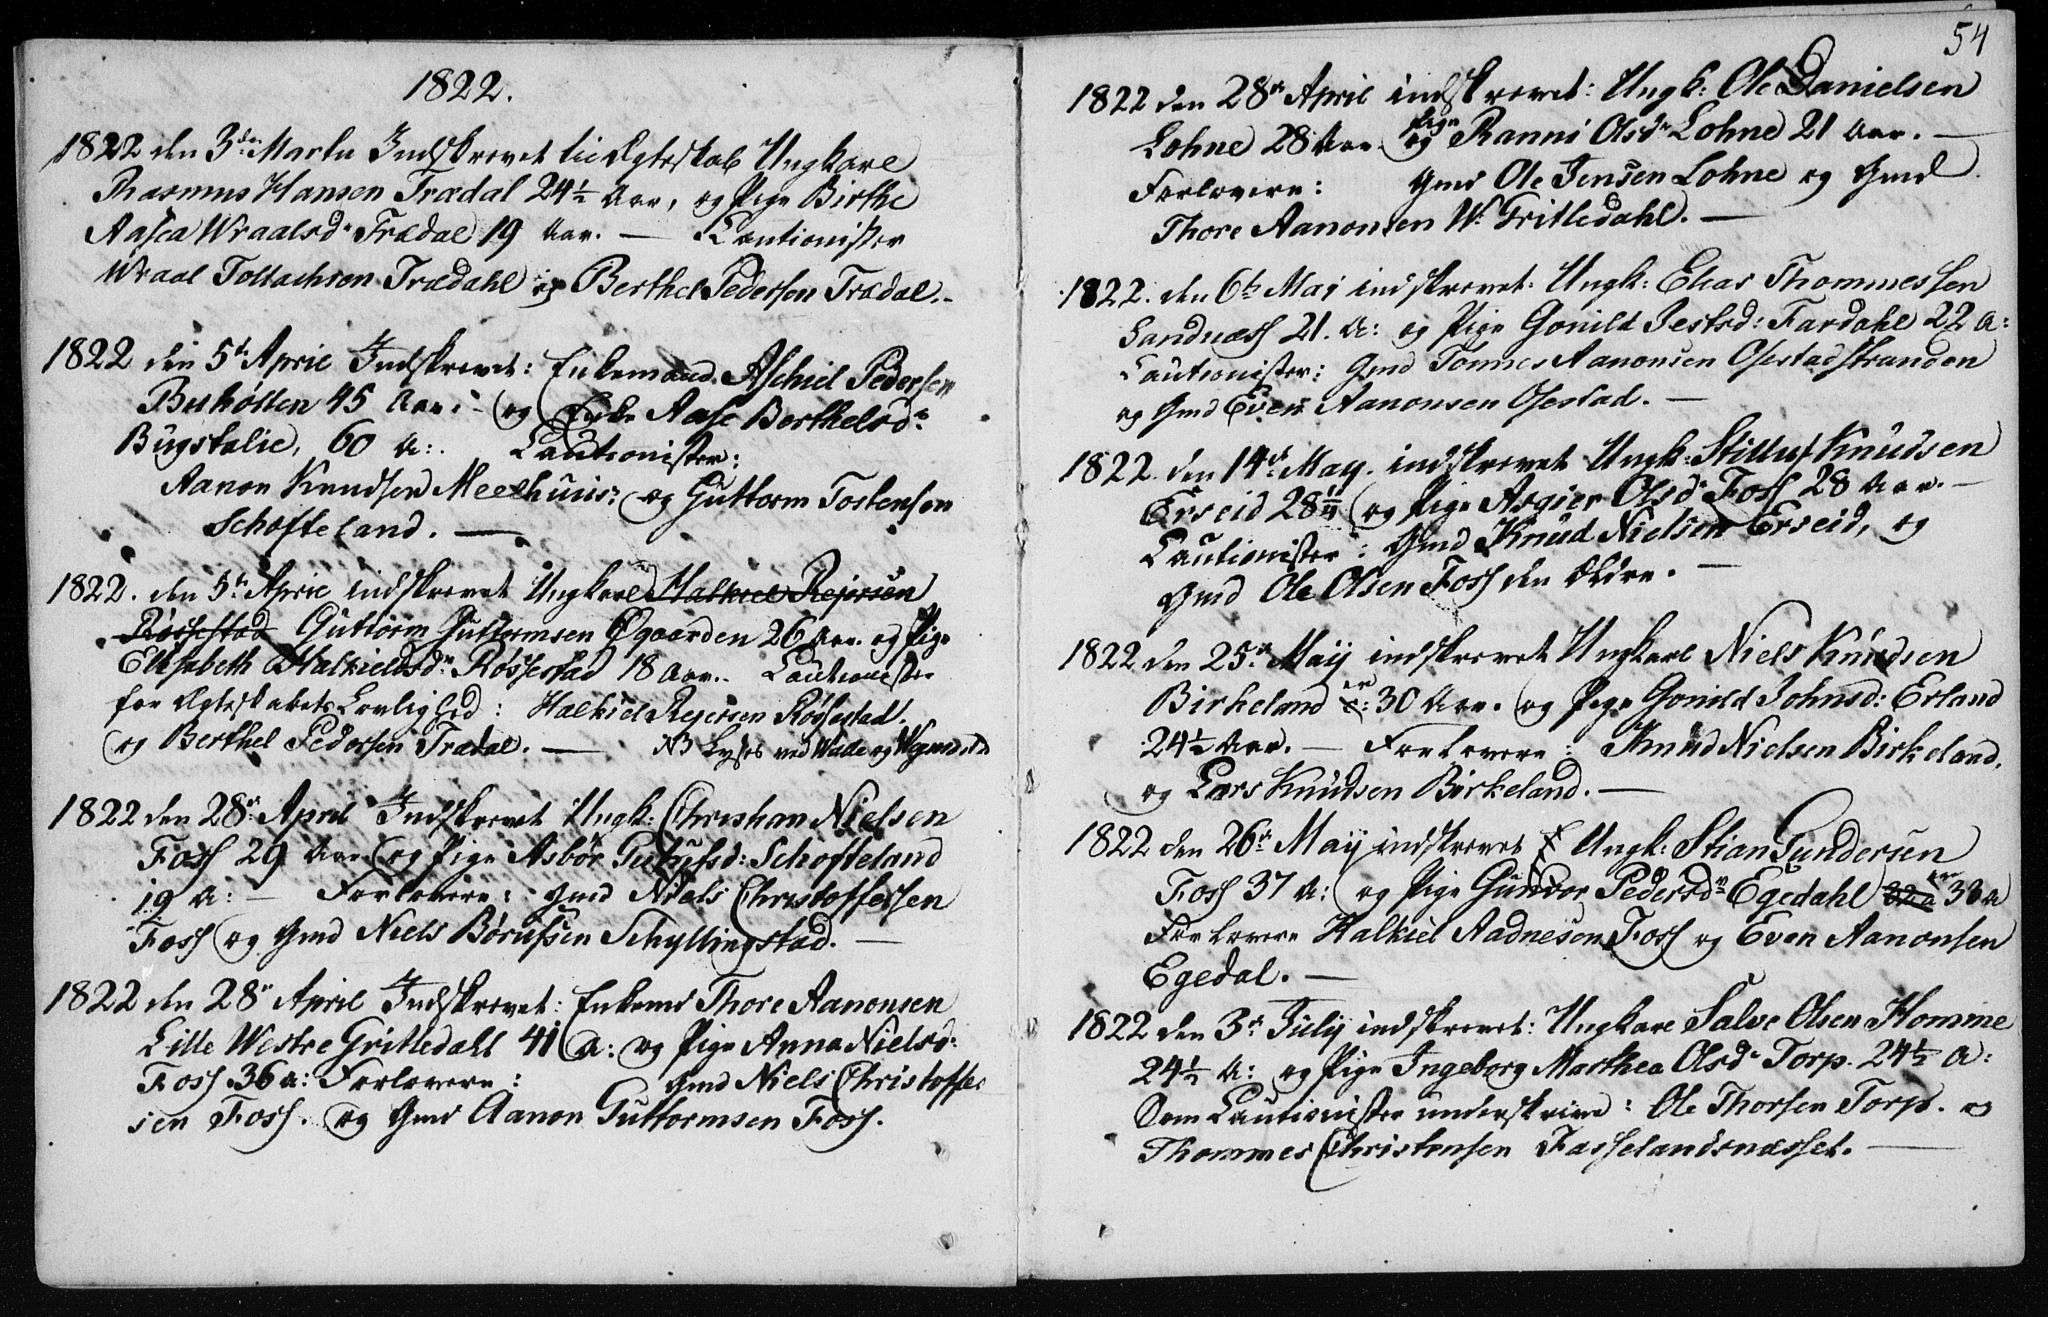 1822.
1822 den 3die Martii Indskrevet til Ægteskab Ungkarl
Rasmus Hansen Trædal 24½ Aar, og Pige Birthe
Aasea Wraalsdr Trædal 19 Aar. — Cautionister
Wraal Tollachsen Trædahl og Berthel Pedersen Trædal.-
1822 den 5te April Indskrevet: Enkemand Aschiel Pedersen
Buhølten 45 Aar: - og Enke Aase Berthelsdr
Bugstølie, 60 A:. Cautionister:
Aanon Knudsen Meelhuus: og Guttorm Tostensen
Schofteland. —
1822. den 5te April indskrevet Ungkarl Halkiel Rejersen
Røssestad Guttorm Guttormsen Øgaarden 26 Aar. og Pige
Elisabeth Halkielsdr Røssestad 18 Aar. - Cautionister
for Ægteskabets Lovlighed: Halkiel Rejersen Røssestad.
og Berthel Pedersen Trædal. — NB Lyses ved
1822 den 28de April Indskrevet Ungk: Christian Nielsen
Foss 29 Aar og Pige Asbør Schofteland
19 A: — Forlovere: Gmd Niels Christoffersen
Foss og Gmd Niels Børufsen Schyllingstad. —
1822 den 28de April Indskrevet: Enkemd Thore Aanonsen
Lille Westre Gritledahl 41 a: og Pige Anna Nielsd:
Foss 36 a: Forlovere: Gmd Niels Christoffer
sen Foss. og Gmd Aanon Guttormsen Foss.
54
1822 den 28de April indskrevet: Ungk: Ole Danielsen
Lohne 28 Aar. og Pige Ranni Olsdr Lohne 21 Aar. —
Forlovere: Gmd Ole Jensen Lohne og Gmd
Thore Aanonsen W: Gritledahl. —
1822. den 6te Maj indskrevet: Ungk: Elias Thommessen
Sandnæss 21. A: og Pige Gonild Jestsd: Fardahl 22 A:
Cautionister: Gmd Tønnes Aanonsen Osestadstranden
og Gmd Even Aanonsen Osestad. —
1822 den 14de May. indskrevet Ungk: Stilluf Knudsen
Erseid 28 og Pige Asgier Olsdr Foss 28 Aar. —
Cautionister: Gmd Knud Nielsen Erseid, og
Gmd Ole Olsen Foss den Ældre. —
1822 den 25de Maij indskrevet Ungkarl Niels Knudsen
Birkeland er 30 Aar. og Pige Gonild Johnsd: Erland
24½ Aar. — Forlovere: Knud Nielsen Birkeland,
og Lars Knudsen Birkeland. —
1822 den 26de Maij indskrevet Ungk: Stian Gundersen
Foss 37 A: og Pige Gunvor Pedersdr Egedahl er 38 a
Forlovere Halkiel Aadnesen Foss og Even Aanonsen
Egedal. —
1822 den 3de Julij indskrevet: Ungkarl Salve Olsen Homme
24½ A: og Pige Ingeborg Marthea Olsdr Torp. 24½ A:
Som Cautionister underskrive: Ole Thorsen Torp. og
Thommes Christensen Fasselandsnæsset. —